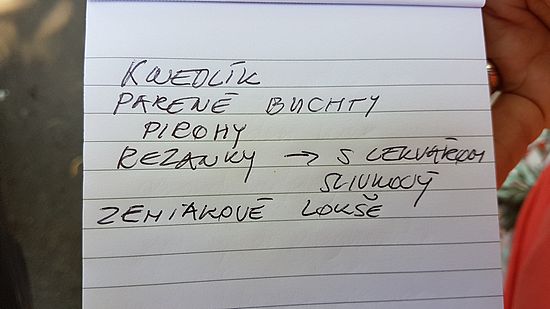 KNEDLÍK
PARENÉ BUCHTY
PIROHY
REZANKY → S LEKVÁROM
SLIVKOVÝ
ZEMIAKOVÉ LOKŠE